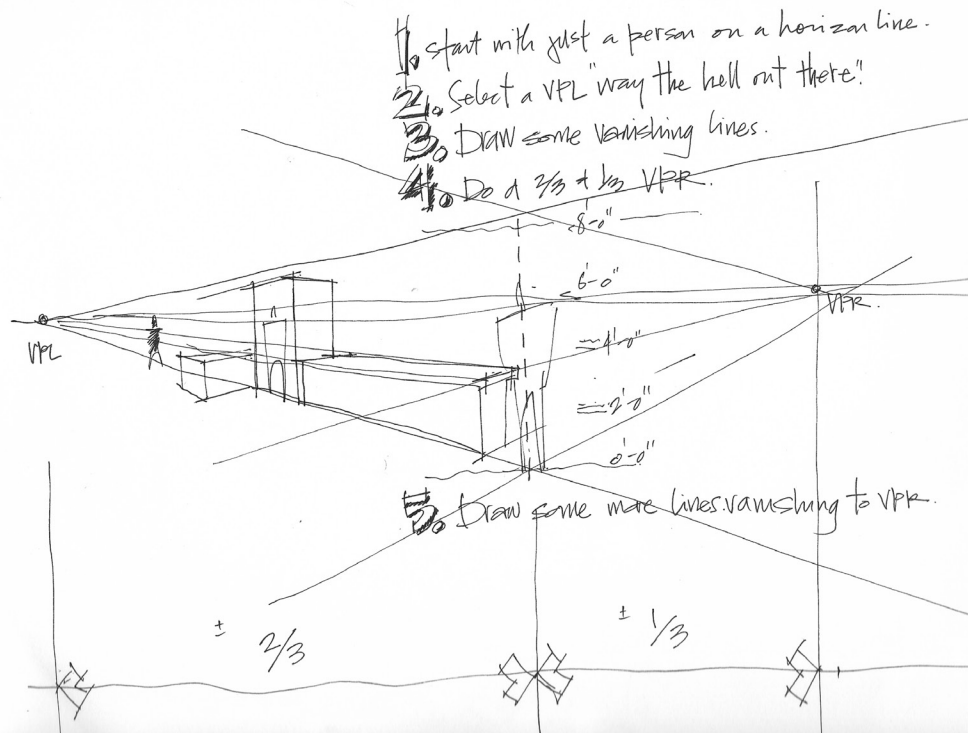 1. start with just a person on a horizon line.
2. Select a VPL "way the hell out there".
3. Draw some vanishing lines.
4. Do a 2/3 + 1/3 VPR.
8'-0"
6'-0"
VPL
VPR.
4'-0"
2'-0"
0'-0"
5. Draw some more lines vanishing to VPR.
± 2/3
± 1/3